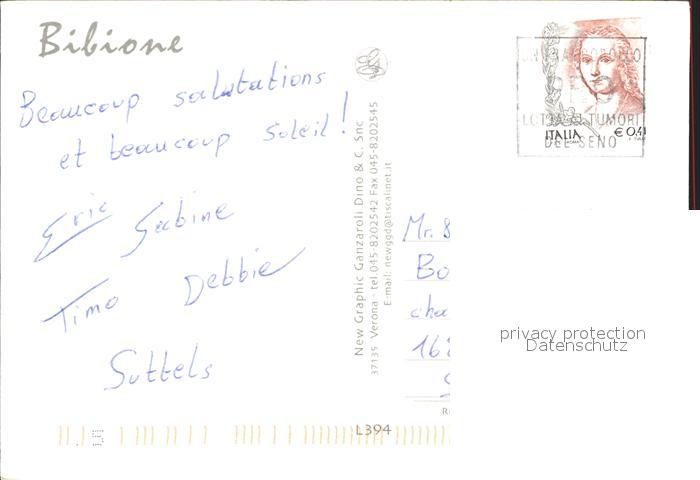 Bibione
Beaucoup salutations
et beaucoup soleil!
Eric Sabine
Timo Debbie
Suttels
New Graphic Ganzaroli Dino & C. Snc
37135 Verona - tel.045-8202542 Fax 045-8202545
E-mail: newggd@tiscalinet.it
L394
LOTTA TUMORI
DEL SENO
ITALIA
€ 0,41
Mr. &
Bo
cha
162
privacy protection
Datenschutz